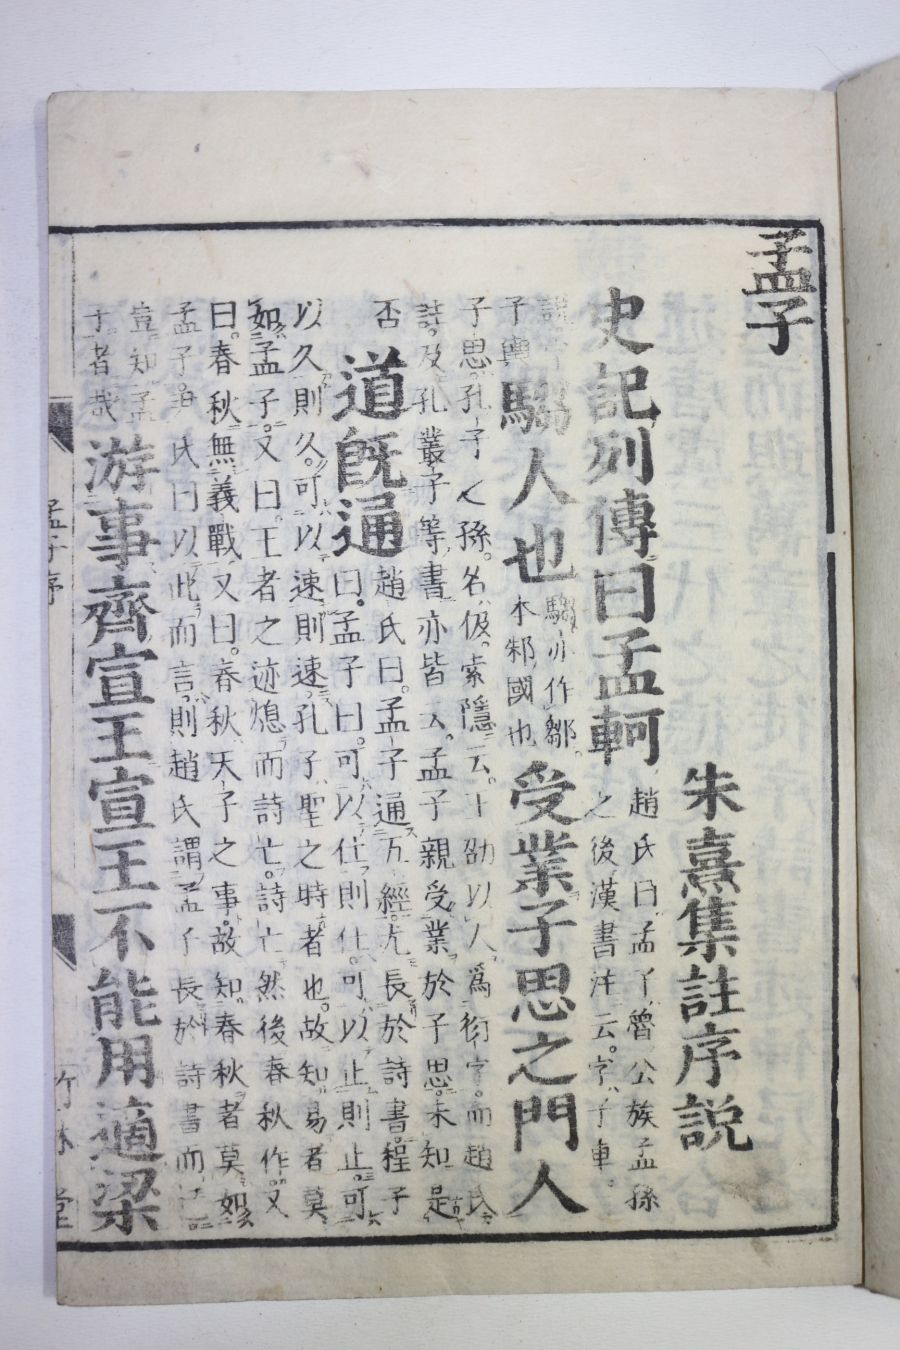 孟子
朱熹集註序説
史記列傳曰孟軻
趙氏曰。孟子、魯公族孟孫
之後漢書注云。字、子車。
説字
子輿
騶人也
騶亦作鄒。
本邾國也
受業子思之門人
子思。孔子之孫。名、伋。索隱云。王劭以人爲衍字。而趙氏
註。及孔叢子等書亦皆云。孟子親受業於子思。未知是
否
道既通
趙氏曰。孟子通五經。尤長於詩書。程子
曰。孟子曰。可以仕則仕。可以止則止。可
以久則久。可以速則速。孔子、聖之時者也。故知易者莫
如孟子。又曰。王者之迹熄而詩亡。詩亡然後春秋作。又
曰。春秋無義戰。又曰。春秋天子之事。故知春秋者莫如
孟子。尹氏曰以此而言。則趙氏謂孟子長於詩書而已
豈知孟
子者哉
游事齊宣王宣王不能用適梁
孟子序
竹林堂